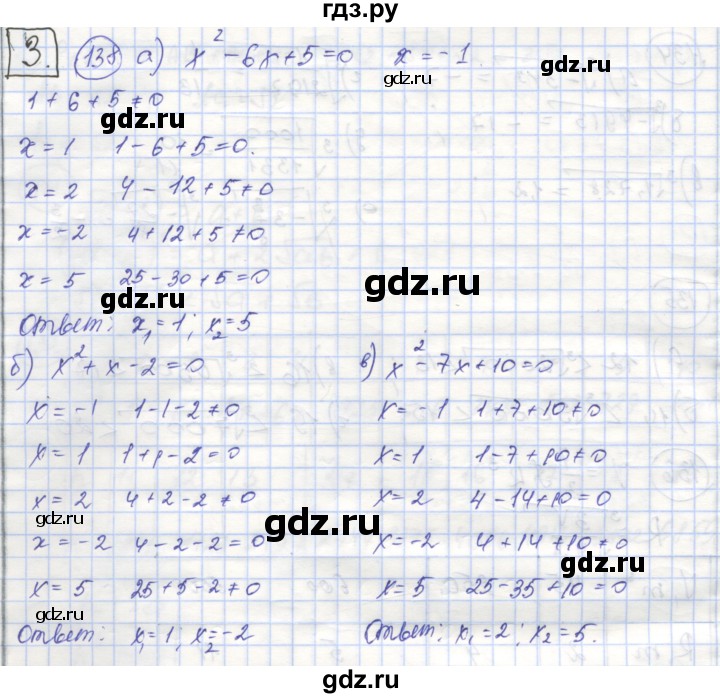 гдз.ру
3. 138 а) x² - 6x + 5 = 0 x = -1
1 + 6 + 5 ≠ 0
gdz.ru
x = 1 1 - 6 + 5 = 0.
x = 2 4 - 12 + 5 ≠ 0
x = -2 4 + 12 + 5 ≠ 0
gdz.ru
x = 5 25 - 30 + 5 = 0
gdz.ru
Ответ: x₁ = 1; x₂ = 5
б) x² + x - 2 = 0
x = -1 1 - 1 - 2 ≠ 0
x = 1 1 + 1 - 2 = 0
x = 2 4 + 2 - 2 ≠ 0
gdz.ru
x = -2 4 - 2 - 2 = 0
x = 5 25 + 5 - 2 ≠ 0
gdz.ru
Ответ: x₁ = 1; x₂ = -2
в) x² - 7x + 10 = 0
gdz.ru
x = -1 1 + 7 + 10 ≠ 0
x = 1 1 - 7 + 10 ≠ 0
x = 2 4 - 14 + 10 = 0
gdz.ru
x = -2 4 + 14 + 10 ≠ 0
gdz.ru
x = 5 25 - 35 + 10 = 0
Ответ: x₁ = 2; x₂ = 5.
gdz.ru